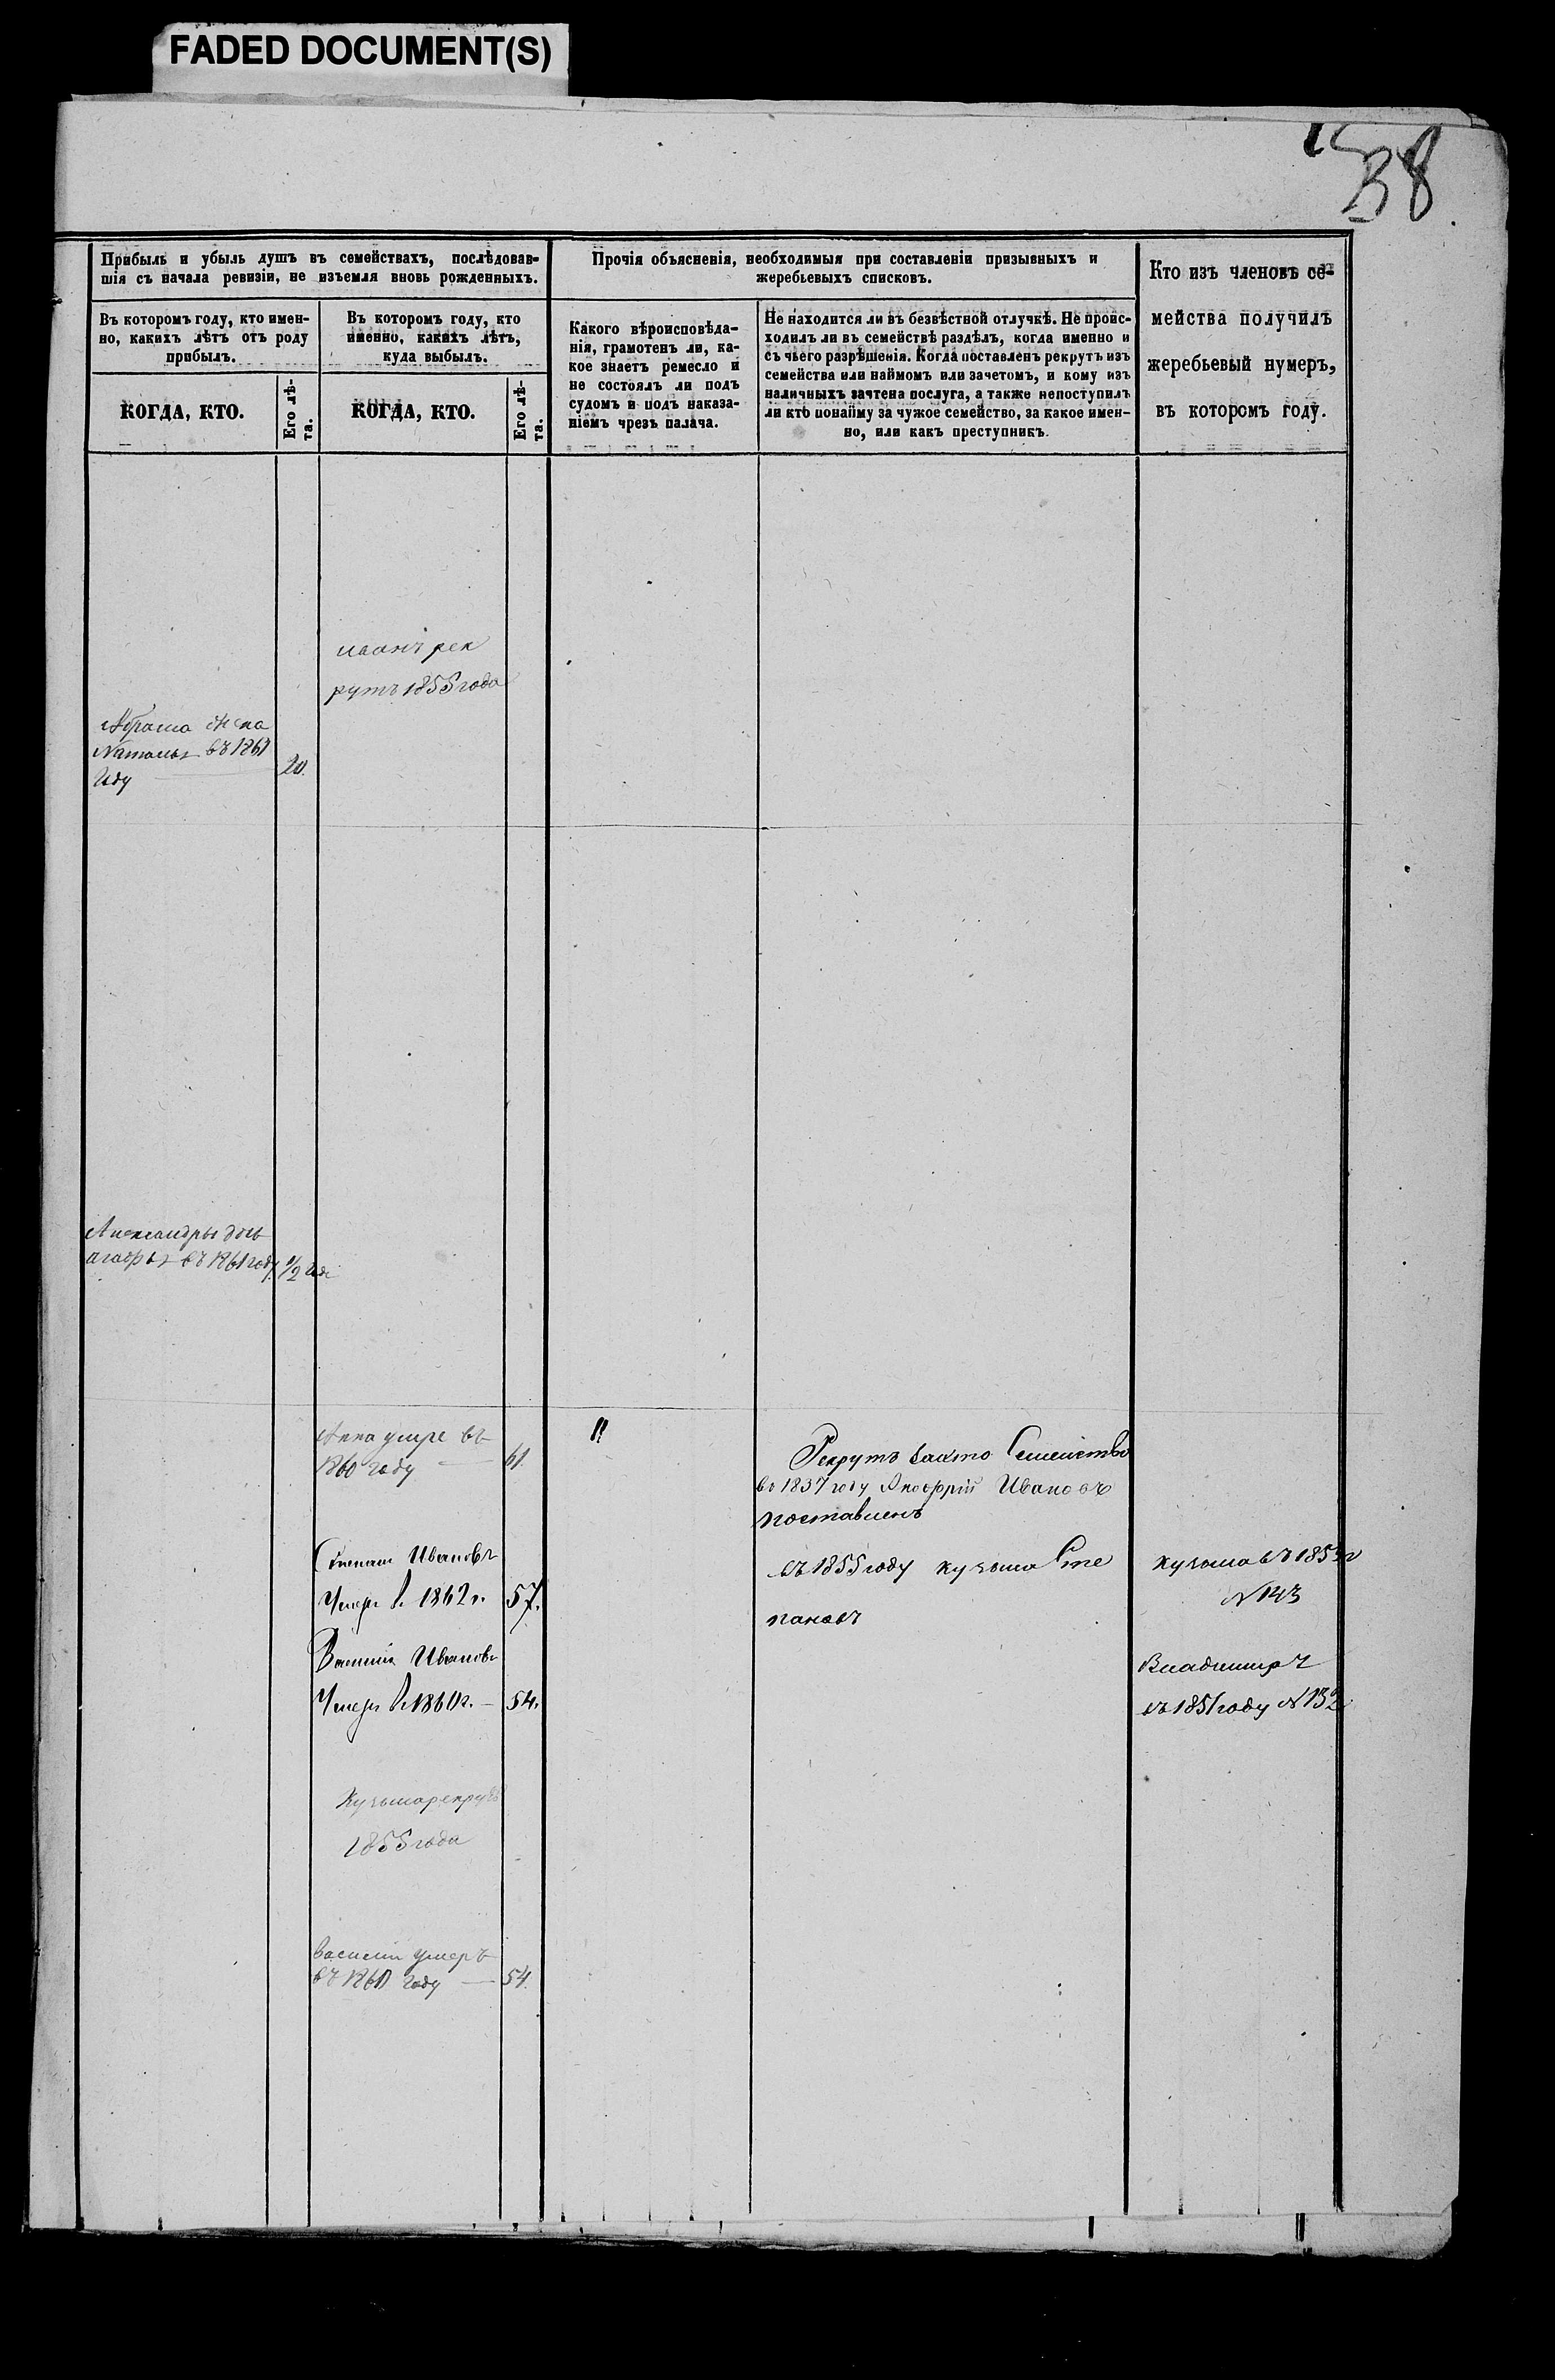 FADED DOCUMENT(S)
38
Прибыль и убыль душъ въ семействахъ, послѣдовав-
шія съ начала ревизіи, не изъемля вновь рожденныхъ.
Въ которомъ году, кто имен-
но, какихъ лѣтъ отъ роду
прибылъ.
КОГДА, КТО.
Его лѣ-
та.
Въ которомъ году, кто
именно, какихъ лѣтъ,
куда выбылъ.
КОГДА, КТО.
Его лѣ-
та.
Прочія объясненія, необходимыя при составленіи призывныхъ и
жеребьевыхъ списковъ.
Какого вѣроисповѣда-
нія, грамотенъ ли, ка-
кое знаетъ ремесло и
не состоялъ ли подъ
судомъ и подъ наказа-
ніемъ чрезъ палача.
Не находится ли въ безвѣстной отлучкѣ. Не проис-
ходилъ ли въ семействѣ раздѣлъ, когда именно и
съ чьего разрѣшенія. Когда поставленъ рекрутъ изъ
семейства или наймомъ или зачетомъ, и кому изъ
наличныхъ зачтена послуга, а также непоступилъ
ли кто понайму за чужое семейство, за какое имен-
но, или какъ преступникъ.
Кто изъ членовъ се-
мейства получилъ
жеребьевый нумеръ,
въ которомъ году.
иванъ рек
рутъ 1855 года
жена
Наталья въ 1861
году
20.
Александры дочь
въ 1861 году 1/2 года
Анна умре въ
1860 году 61.
Рекрутъ Семейства
въ 1837 году Анофрій Ивановъ
поставленъ
Степанъ Ивановъ
Умеръ в 1862 г. 57.
въ 1855 году кузьма Сте
пановъ
кузьма въ 1853 г
№ 143
Василій Ивановъ
Умеръ в 1860 г. 54.
Владимиръ
въ 1851 году № 132
Кузьма рекрутъ
1855 года
василій умеръ
въ 1860 году 54.